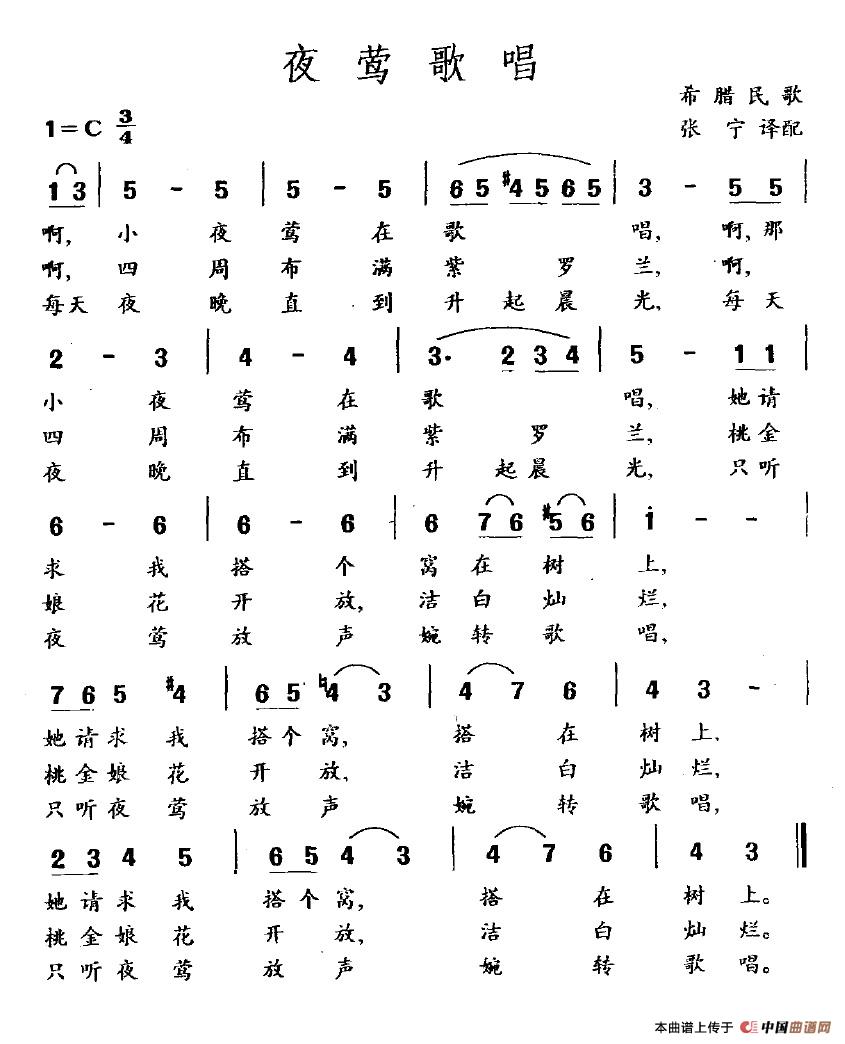 夜莺歌唱
希腊民歌
1=C 3/4
张宁译配
1 3 | 5 - 5 | 5 - 5 | 6 5 #4 5 6 5 | 3 - 5 5 |
啊, 小 夜 莺 在 歌 唱, 啊, 那
啊, 四 周 布 满 紫 罗 兰, 啊,
每天 夜 晚 直 到 升 起 晨 光, 每 天
2 - 3 | 4 - 4 | 3. 2 3 4 | 5 - 1 1 |
小 夜 莺 在 歌 唱, 她 请
四 周 布 满 紫 罗 兰, 桃 金
夜 晚 直 到 升 起 晨 光, 只 听
6 - 6 | 6 - 6 | 6 7 6 #5 6 | i - - |
求 我 搭 个 窝 在 树 上,
娘 花 开 放, 洁 白 灿 烂,
夜 莺 放 声 婉 转 歌 唱,
7 6 5 #4 | 6 5 ♮4 3 | 4 7 6 | 4 3 - |
她 请 求 我 搭 个 窝, 搭 在 树 上,
桃 金 娘 花 开 放, 洁 白 灿 烂,
只 听 夜 莺 放 声 婉 转 歌 唱,
2 3 4 5 | 6 5 4 3 | 4 7 6 | 4 3 ‖
她 请 求 我 搭 个 窝, 搭 在 树 上。
桃 金 娘 花 开 放, 洁 白 灿 烂。
只 听 夜 莺 放 声 婉 转 歌 唱。
本曲谱上传于 中国曲谱网